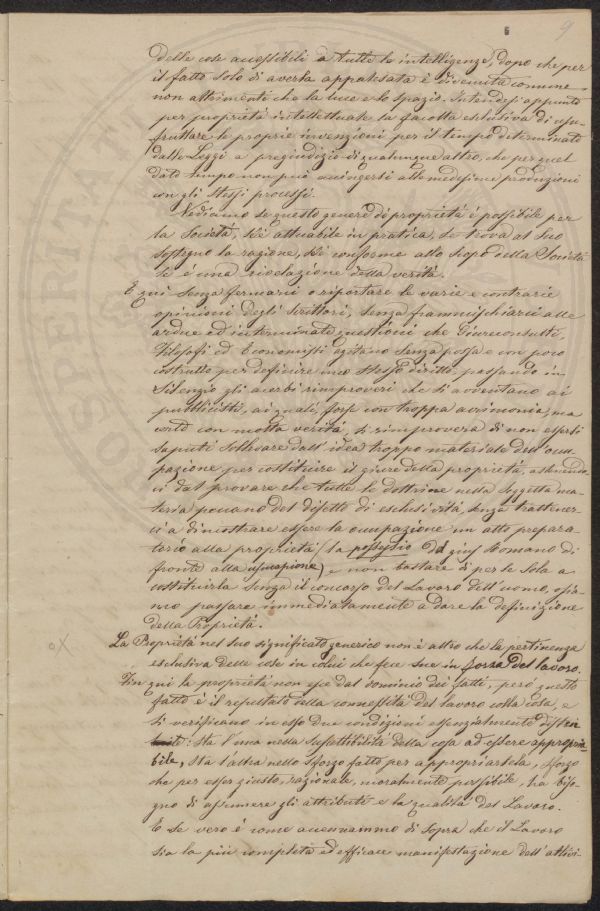 9
delle cose accessibili a tutte le intelligenze, dopo che per
il fatto solo di averla appalesata è divenuta comune
non altrimenti che la luce e lo spazio. Intendesi appunto
per proprietà intellettuale la facoltà esclusiva di usu-
fruttare le proprie invenzioni per il tempo determinato
dalle Leggi a pregiudizio di qualunque altro, che per quel
dato tempo non può accingersi alle medesime produzioni
con gli stessi processi.
Vediamo se questo genere di proprietà è possibile per
la Società, se è attuabile in pratica, se trova al suo
sostegno la ragione, se è conforme allo scopo della Società
se è una rivelazione della verità.
E qui senza fermarci o riportare le varie e contrarie
opinioni degli scrittori, senza frammischiarci alle
ardue ed interminate questioni che Giureconsulti,
Filosofi ed Economisti agitano senza posa e con poco
costrutto per definire uno stesso diritto, passando in
silenzio gli acerbi rimproveri che si avventano ai
pubblicisti, ai quali, forse con troppa acrimonia, ma
certo con molta verità, si rimprovera di non essersi
saputi sollevare dall'idea troppo materiale dell'occu-
pazione per costituire il giure della proprietà, astenendo-
ci dal provare che tutte le dottrine nella soggetta ma-
teria peccano del difetto di esclusività, senza trattener-
ci a dimostrare essere la occupazione un atto prepara-
torio alla proprietà (la possessio del gius Romano di
fronte alla usucapione) e non bastare di per se sola a
costituirla senza il concorso del Lavoro dell'uomo, osia-
mo passare immediatamente a dare la definizione
della Proprietà.
La Proprietà nel suo significato generico non è altro che la pertinenza
esclusiva delle cose in colui che fece sue in forza del lavoro.
Fin qui la proprietà non esce dal dominio dei fatti, però questo
fatto è il resultato della connessità del lavoro colla cosa, e
si verificano in esso due condizioni essenzialmente distin
: sta l'una nella suscettibilità della cosa ad essere appropria
bile, sta l'altra nello sforzo fatto per appropriarsela, sforzo
che per esser giusto, razionale, moralmente possibile, ha biso-
gno di assumere gli attributi e la qualità del Lavoro.
E se vero è come accennammo di sopra che il Lavoro
sia la più completa ed efficace manifestazione dell'attivi-